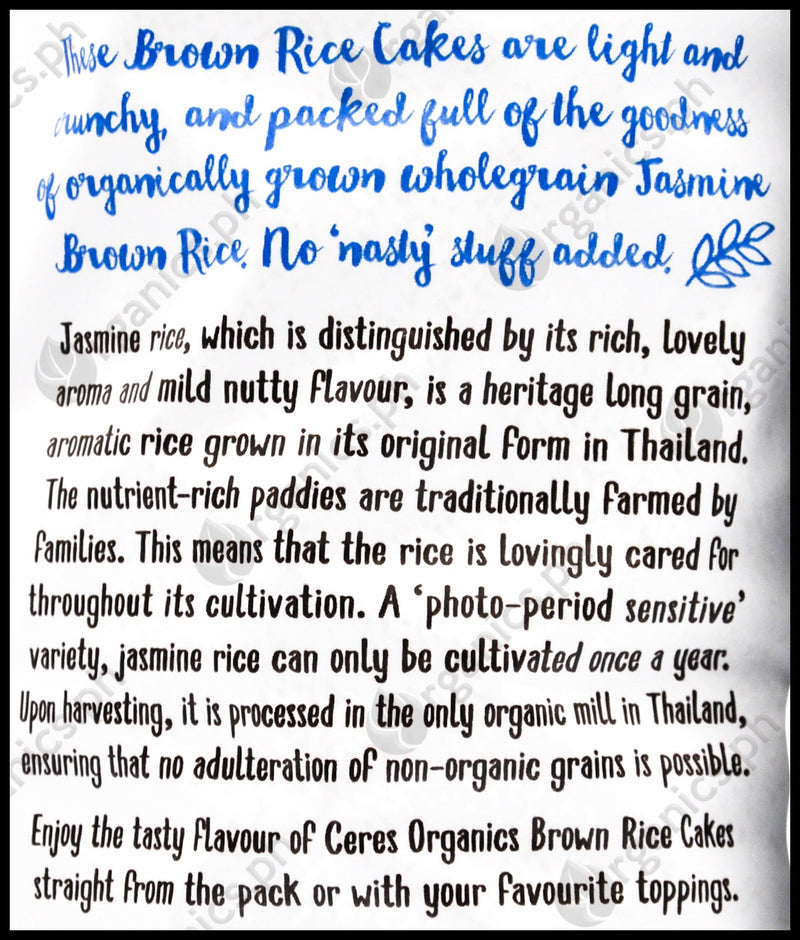 These Brown Rice Cakes are light and
crunchy, and packed full of the goodness
of organically grown wholegrain Jasmine
Brown Rice. No 'nasty' stuff added.
Jasmine rice, which is distinguished by its rich, lovely
aroma and mild nutty flavour, is a heritage long grain,
aromatic rice grown in its original form in Thailand.
The nutrient-rich paddies are traditionally farmed by
families. This means that the rice is lovingly cared for
throughout its cultivation. A 'photo-period sensitive'
variety, jasmine rice can only be cultivated once a year.
Upon harvesting, it is processed in the only organic mill in Thailand,
ensuring that no adulteration of non-organic grains is possible.
Enjoy the tasty flavour of Ceres Organics Brown Rice Cakes
straight from the pack or with your favourite toppings.